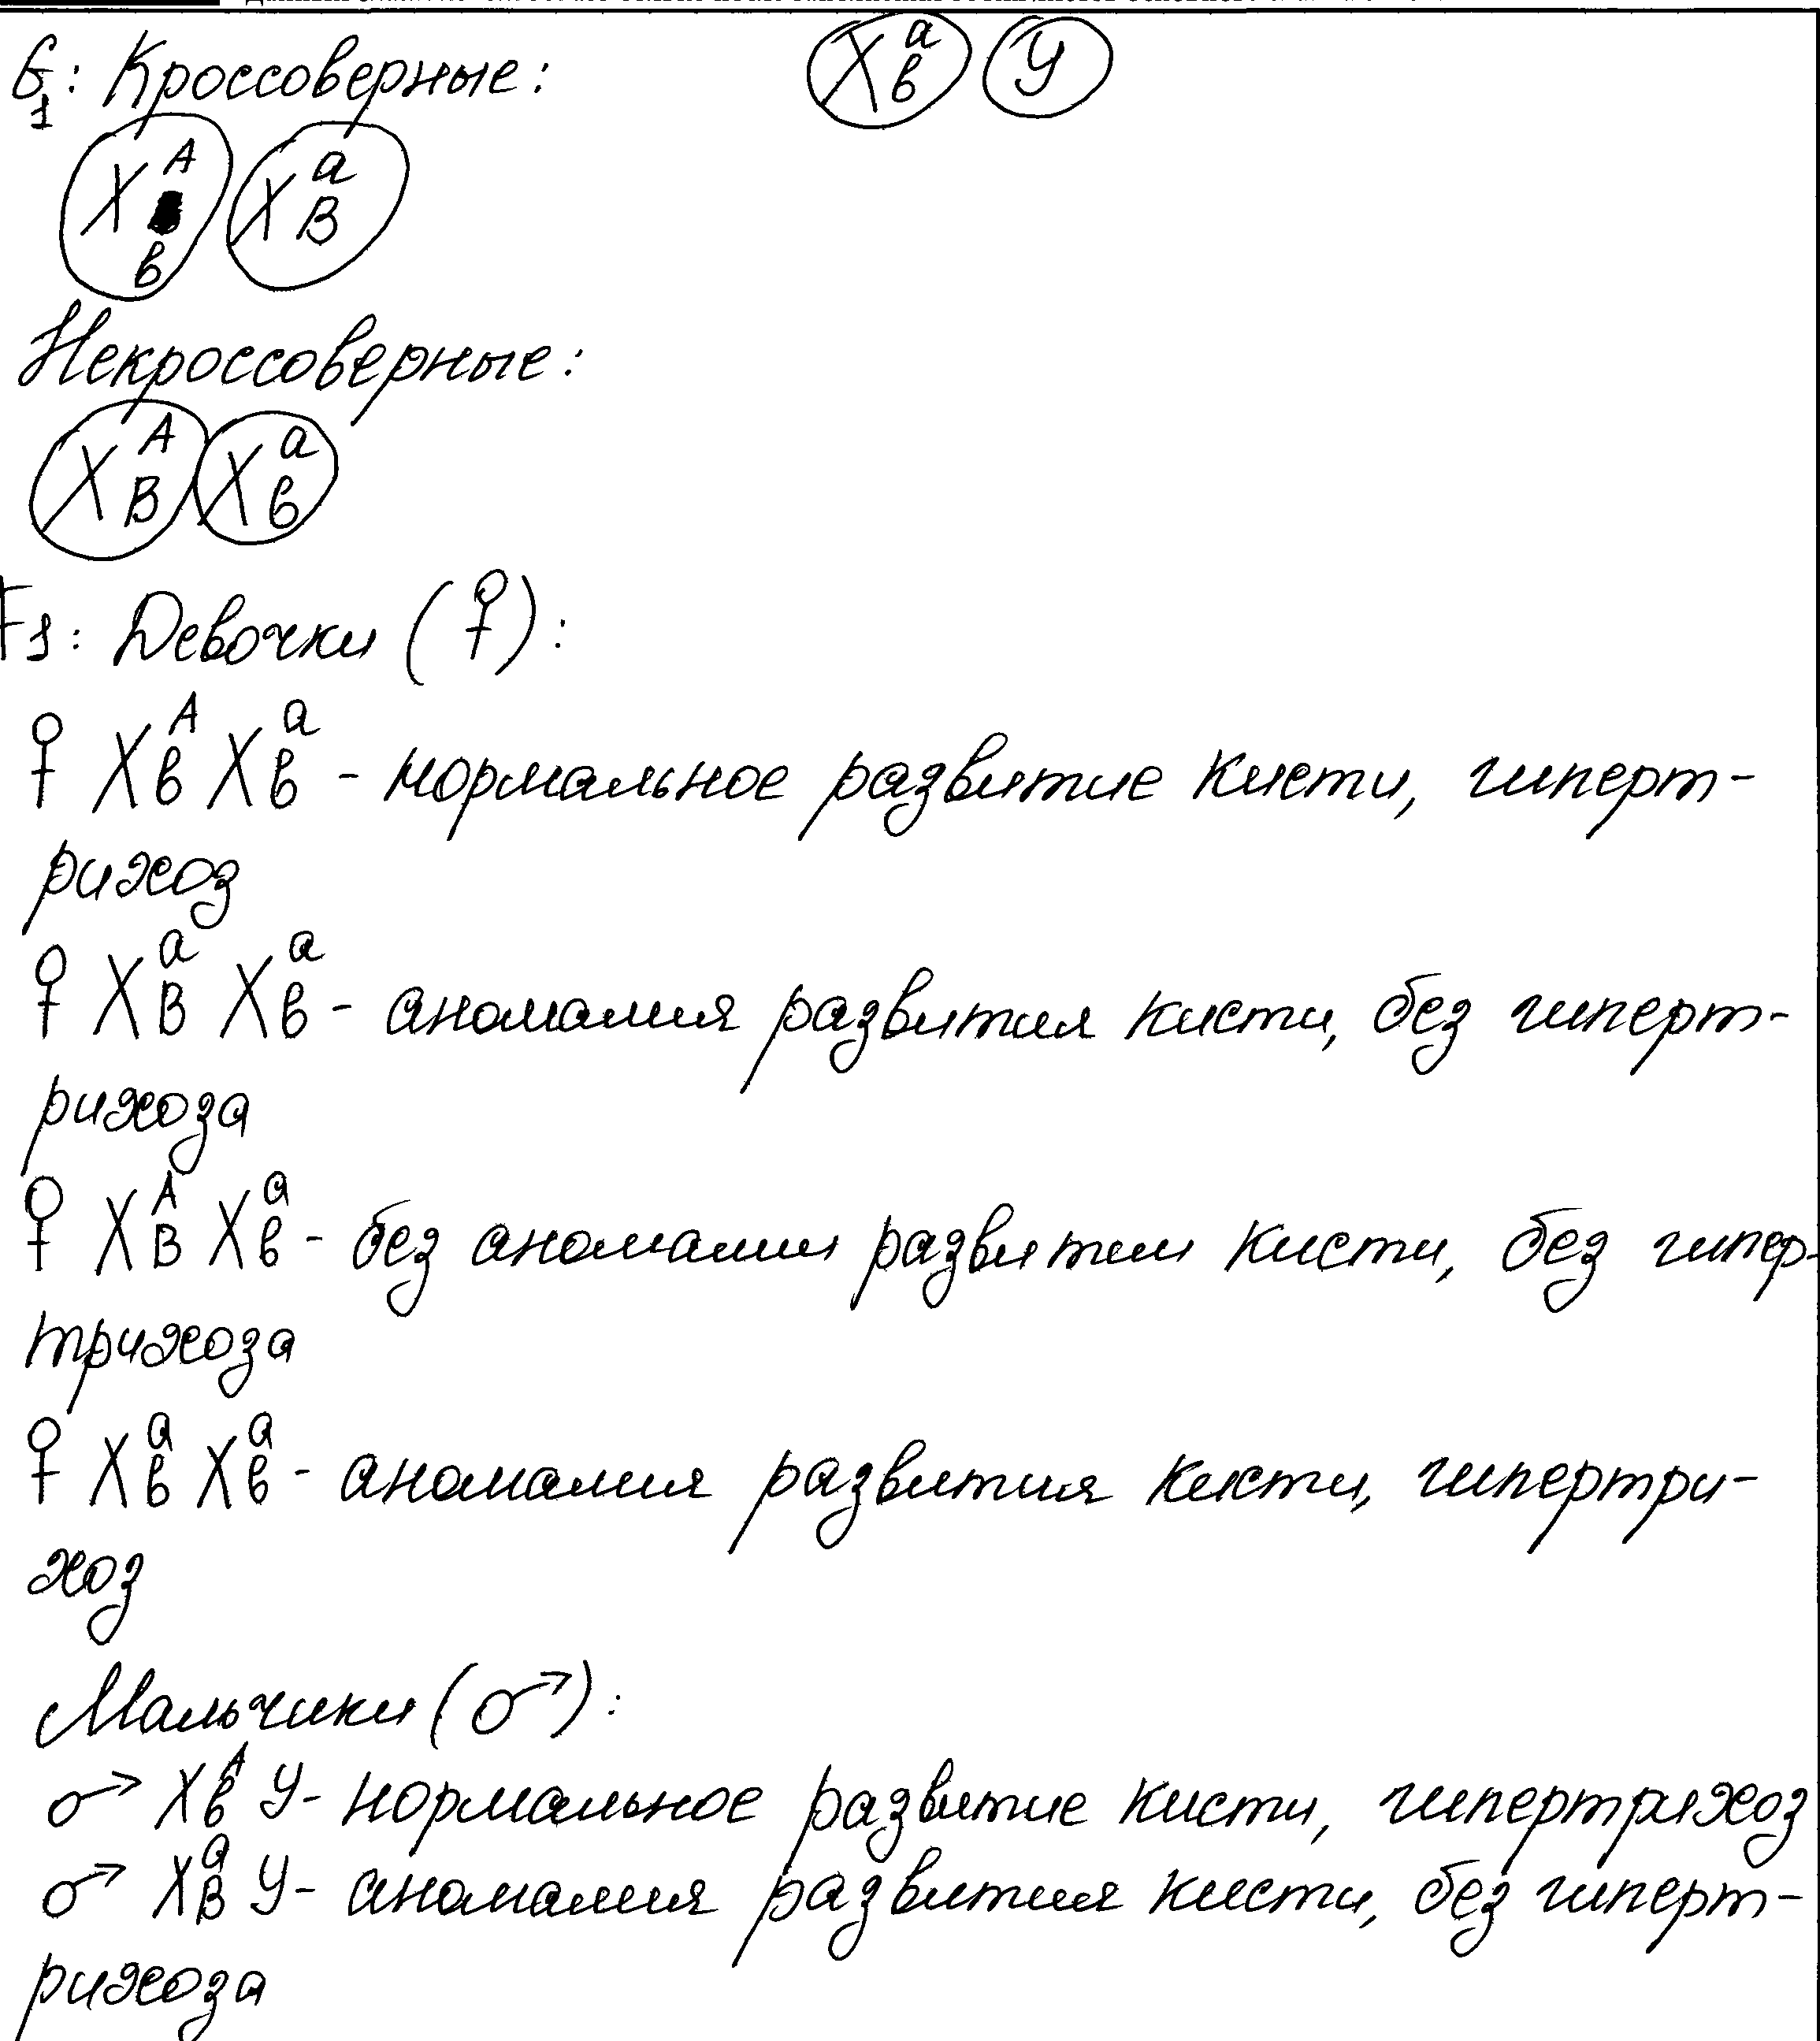 G₁: Кроссоверные: X^a_в У
X^A_в X^a_B
Некроссоверные:
X^A_B X^a_в
F1: Девочки (♀):
♀ X^A_в X^a_в - нормальное развитие кисти, гиперт-
рихоз
♀ X^a_B X^a_в - аномалия развития кисти, без гиперт-
рихоза
♀ X^A_B X^a_в - без аномалии развитии кисти, без гипер-
трихоза
♀ X^a_в X^a_в - аномалия развития кисти, гипертри-
хоз
Мальчики (♂):
♂ X^A_в У - нормальное развитие кисти, гипертрихоз
♂ X^a_B У - аномалия развития кисти, без гиперт-
рихоза